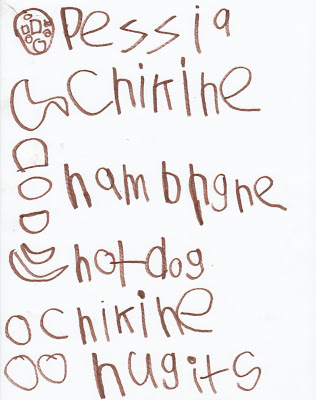 pessia
Chikine
hambhgne
hotdog
Chikine
hugits